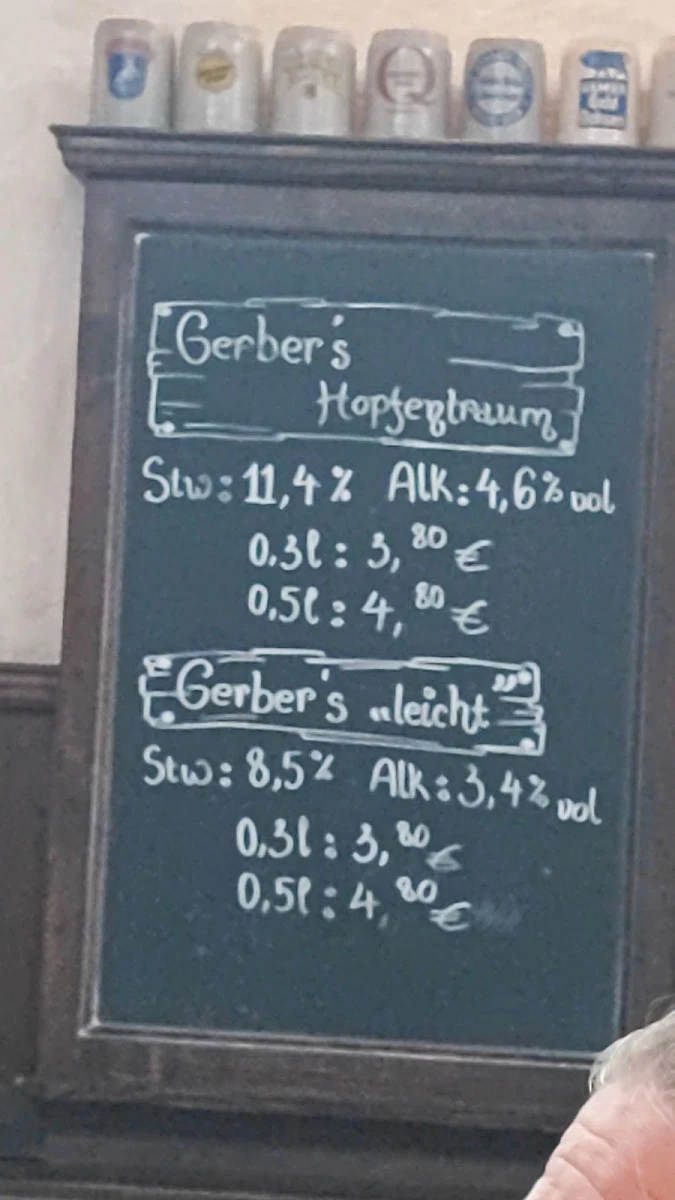 Gerber's
Hopfentraum
Stw: 11,4% Alk: 4,6% vol
0.3l: 3,80 €
0,5l: 4,80 €
Gerber's „leicht"
Stw: 8,5% Alk: 3,4% vol
0,3l: 3,80 €
0,5l: 4,80 €